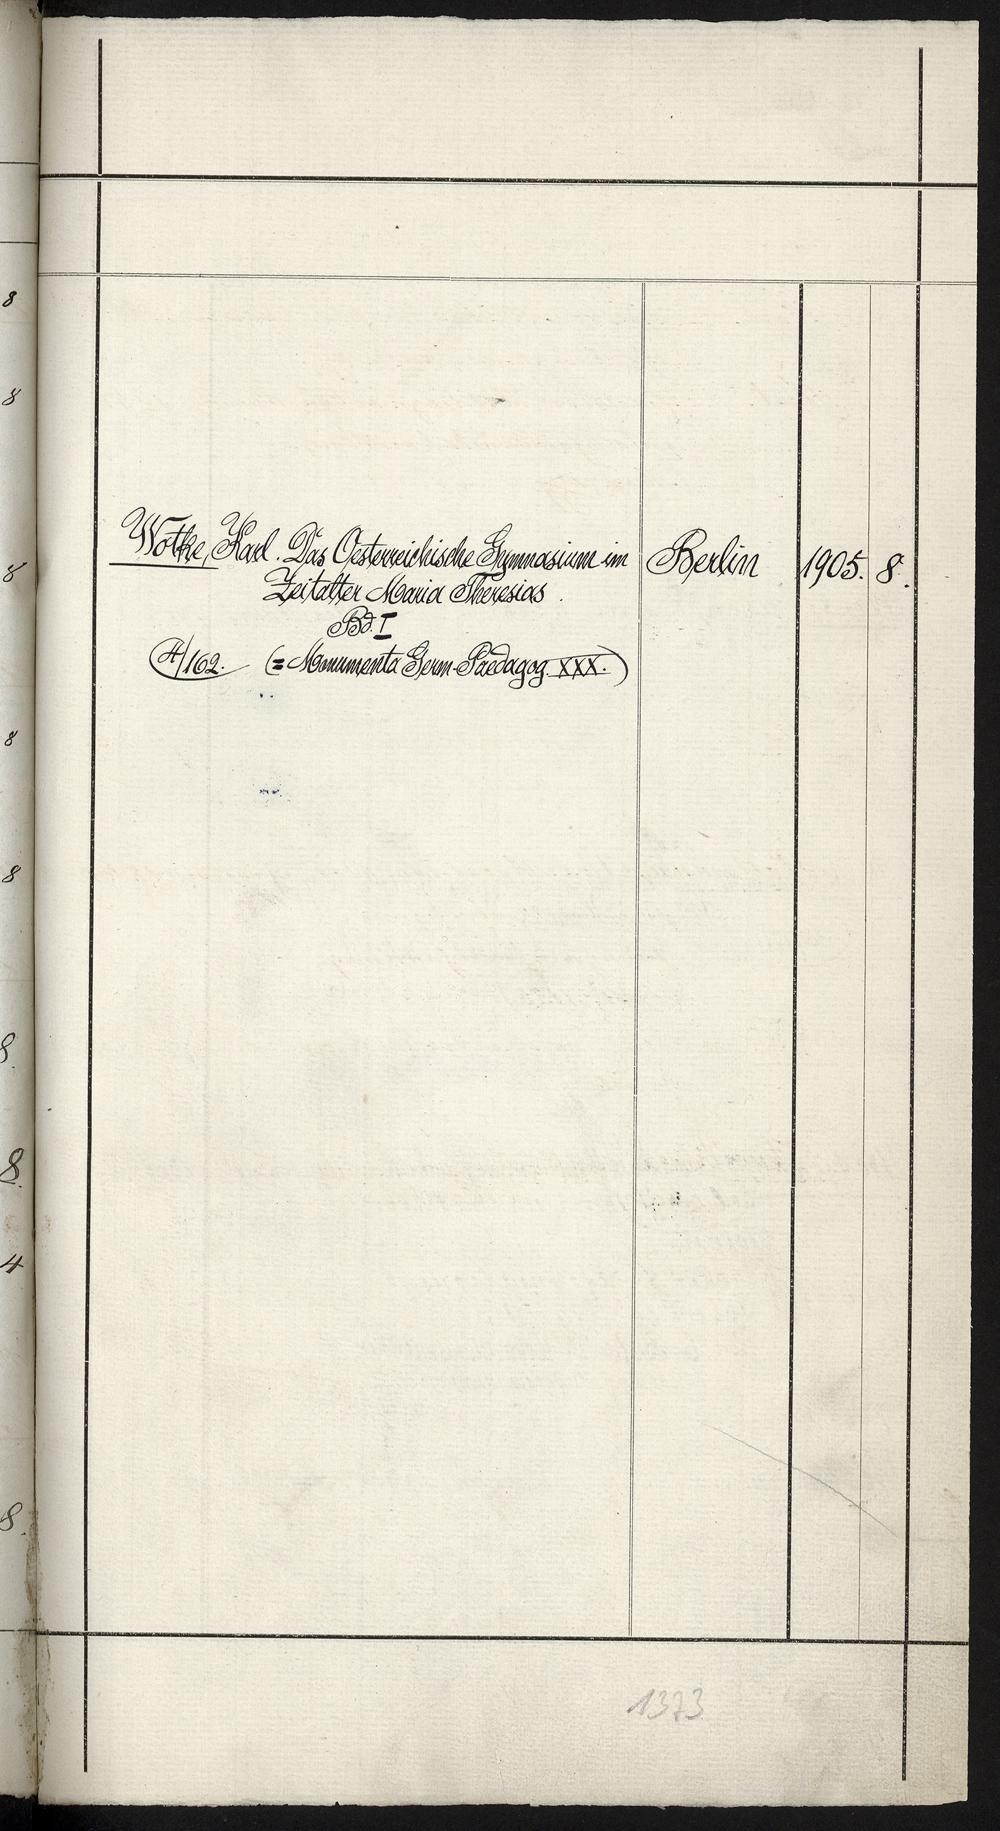 8
8
Wotke, Karl. Das Oesterreichische Gymnasium im Berlin 1905. 8.
8
Zeitalter Maria Theresias.
Bd. I
A/162. (= Monumenta Germ. Paedagog. XXX.)
8
8
8.
8.
4
8.
1373